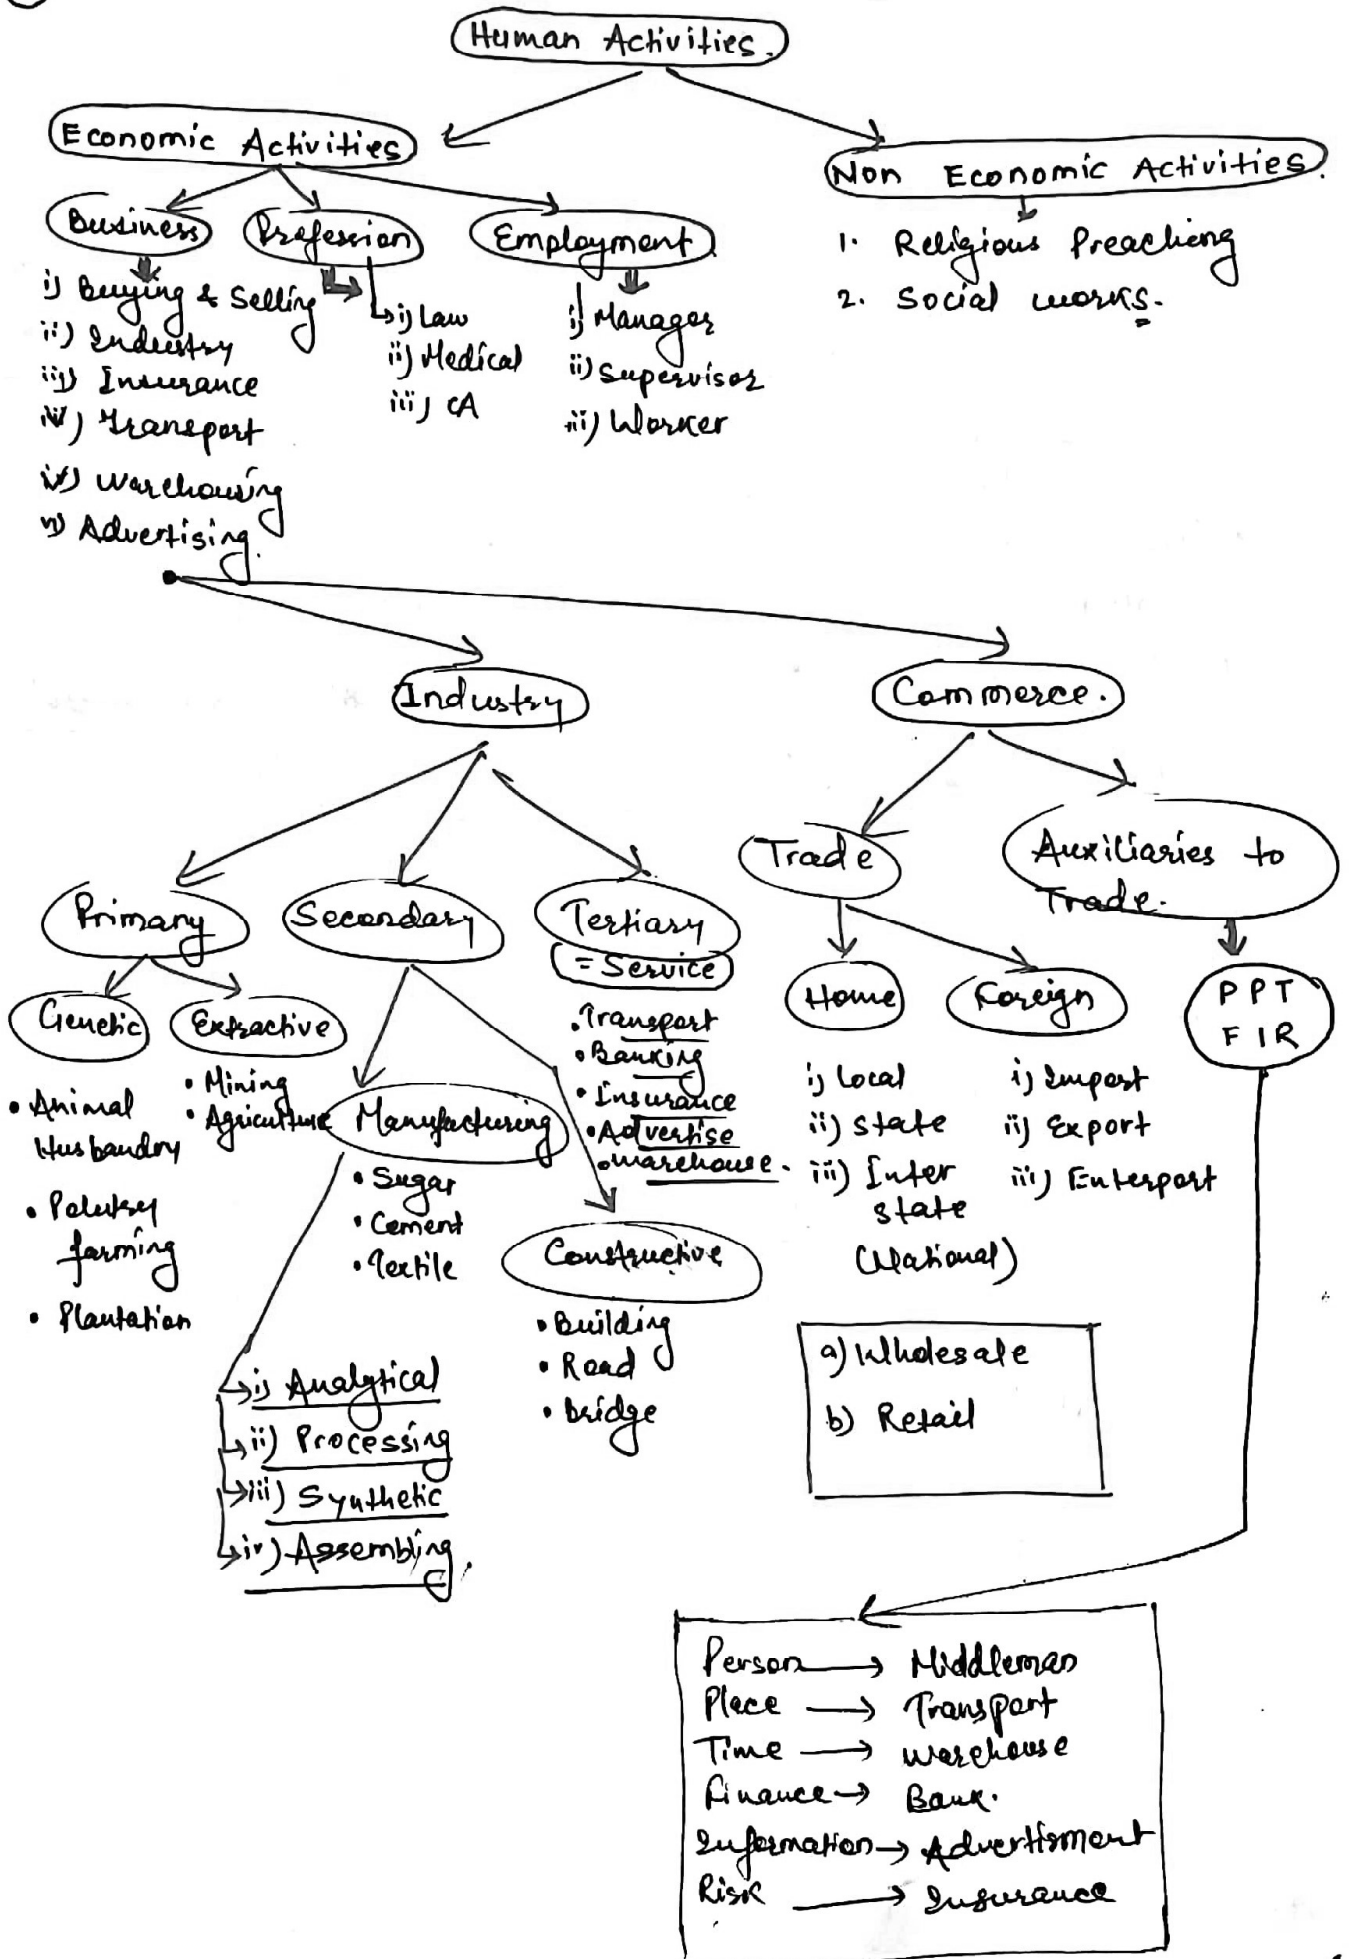 Human Activities.
Economic Activities
Non Economic Activities.
Business
Profession
Employment
1. Religious Preaching
2. Social works.
i) Buying & Selling
ii) Industry
iii) Insurance
iv) Transport
iv) Warehousing
v) Advertising.
i) Law
ii) Medical
iii) CA
i) Manager
ii) Supervisor
iii) Worker
Industry
Commerce.
Primary
Secondary
Tertiary
= Service
Trade
Auxiliaries to
Trade.
Genetic
Extractive
• Animal
Husbandry
• Polutry
farming
• Plantation
• Mining
• Agriculture
Manufacturing
• Sugar
• Cement
• Textile
i) Analytical
ii) Processing
iii) Synthetic
iv) Assembling.
• Transport
• Banking
• Insurance
• Advertise
• Warehouse.
Constructive
• Building
• Road
• bridge
Home
Foreign
PPT
FIR
i) Local
ii) State
iii) Inter
state
(National)
i) Import
ii) Export
iii) Enterport
a) Wholesale
b) Retail
Person → Middleman
Place → Transport
Time → Warehouse
Finance → Bank.
Information → Advertisment
Risk → Insurance